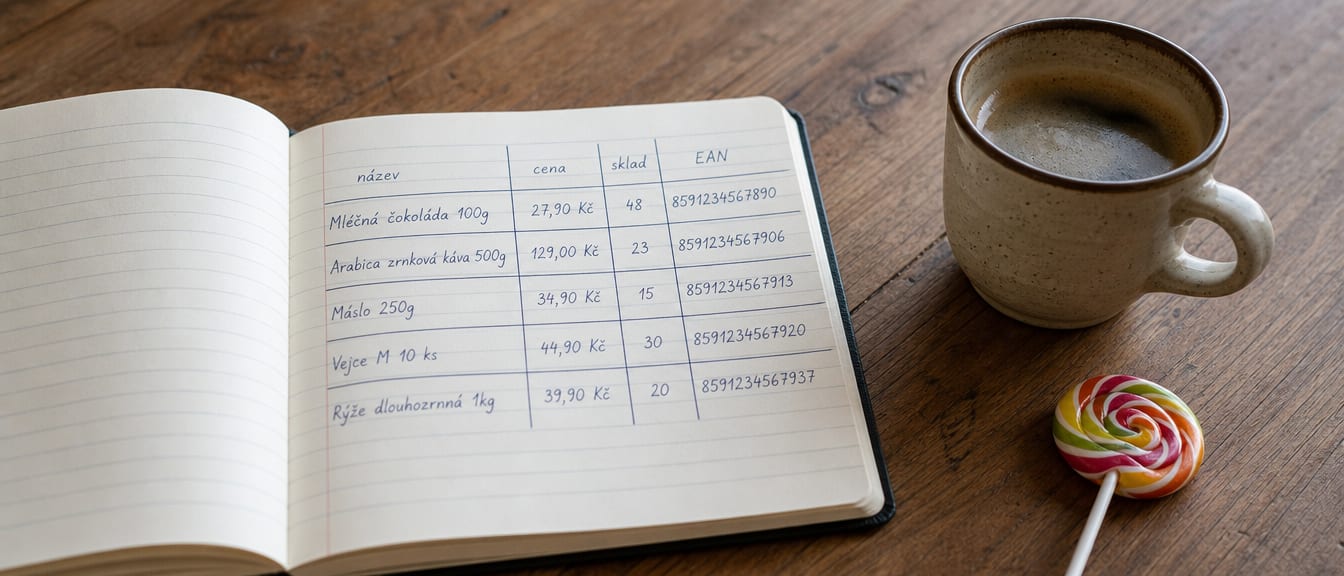 název cena sklad EAN
Mléčná čokoláda 100g 27,90 Kč 48 8591234567890
Arabica zrnková káva 500g 129,00 Kč 23 8591234567906
Máslo 250g 34,90 Kč 15 8591234567913
Vejce M 10 ks 44,90 Kč 30 8591234567920
Rýže dlouhozrnná 1kg 39,90 Kč 20 8591234567937